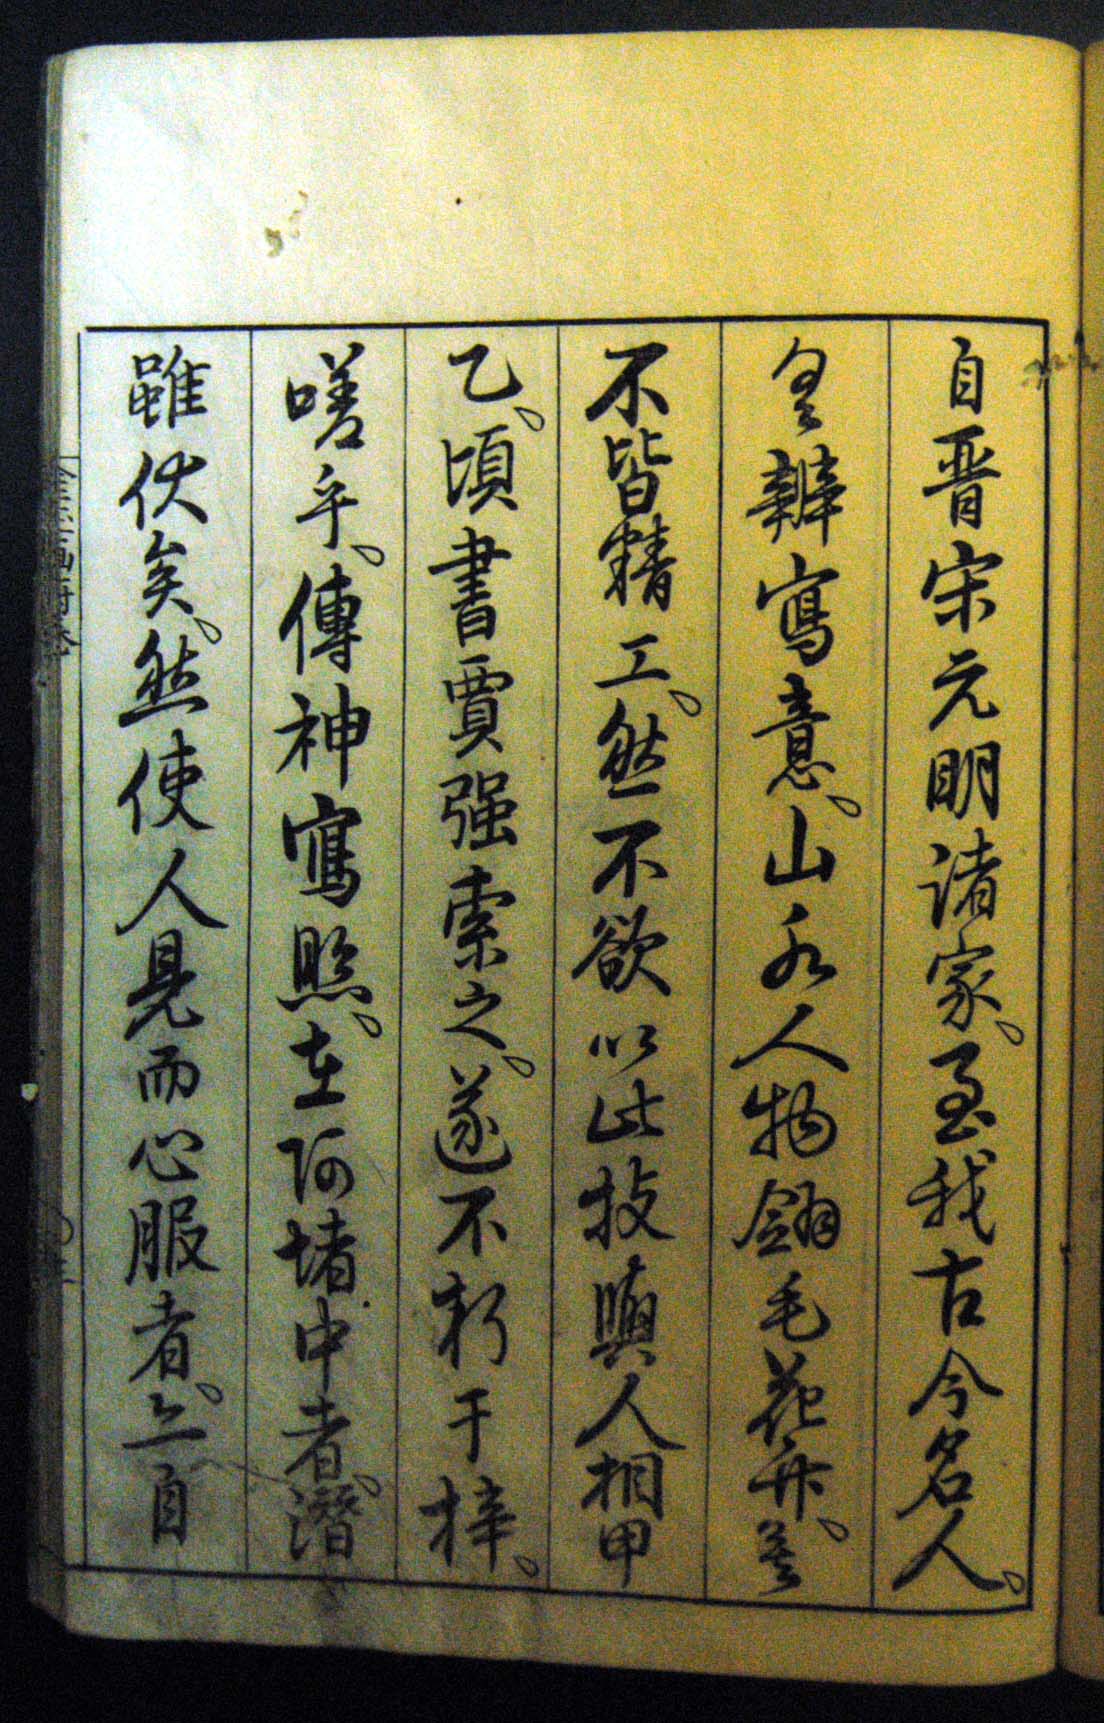 自晋宋元明諸家。至我古今名人。
多辨寫意。山水人物翎毛花卉。莫
不皆精工。然不欲以此技與人相甲
乙。頃書賈强索之。遂不朽于梓。
嗟乎。傳神寫照。在阿堵中者。潛
雖伏矣。然使人見而心服者。亦自